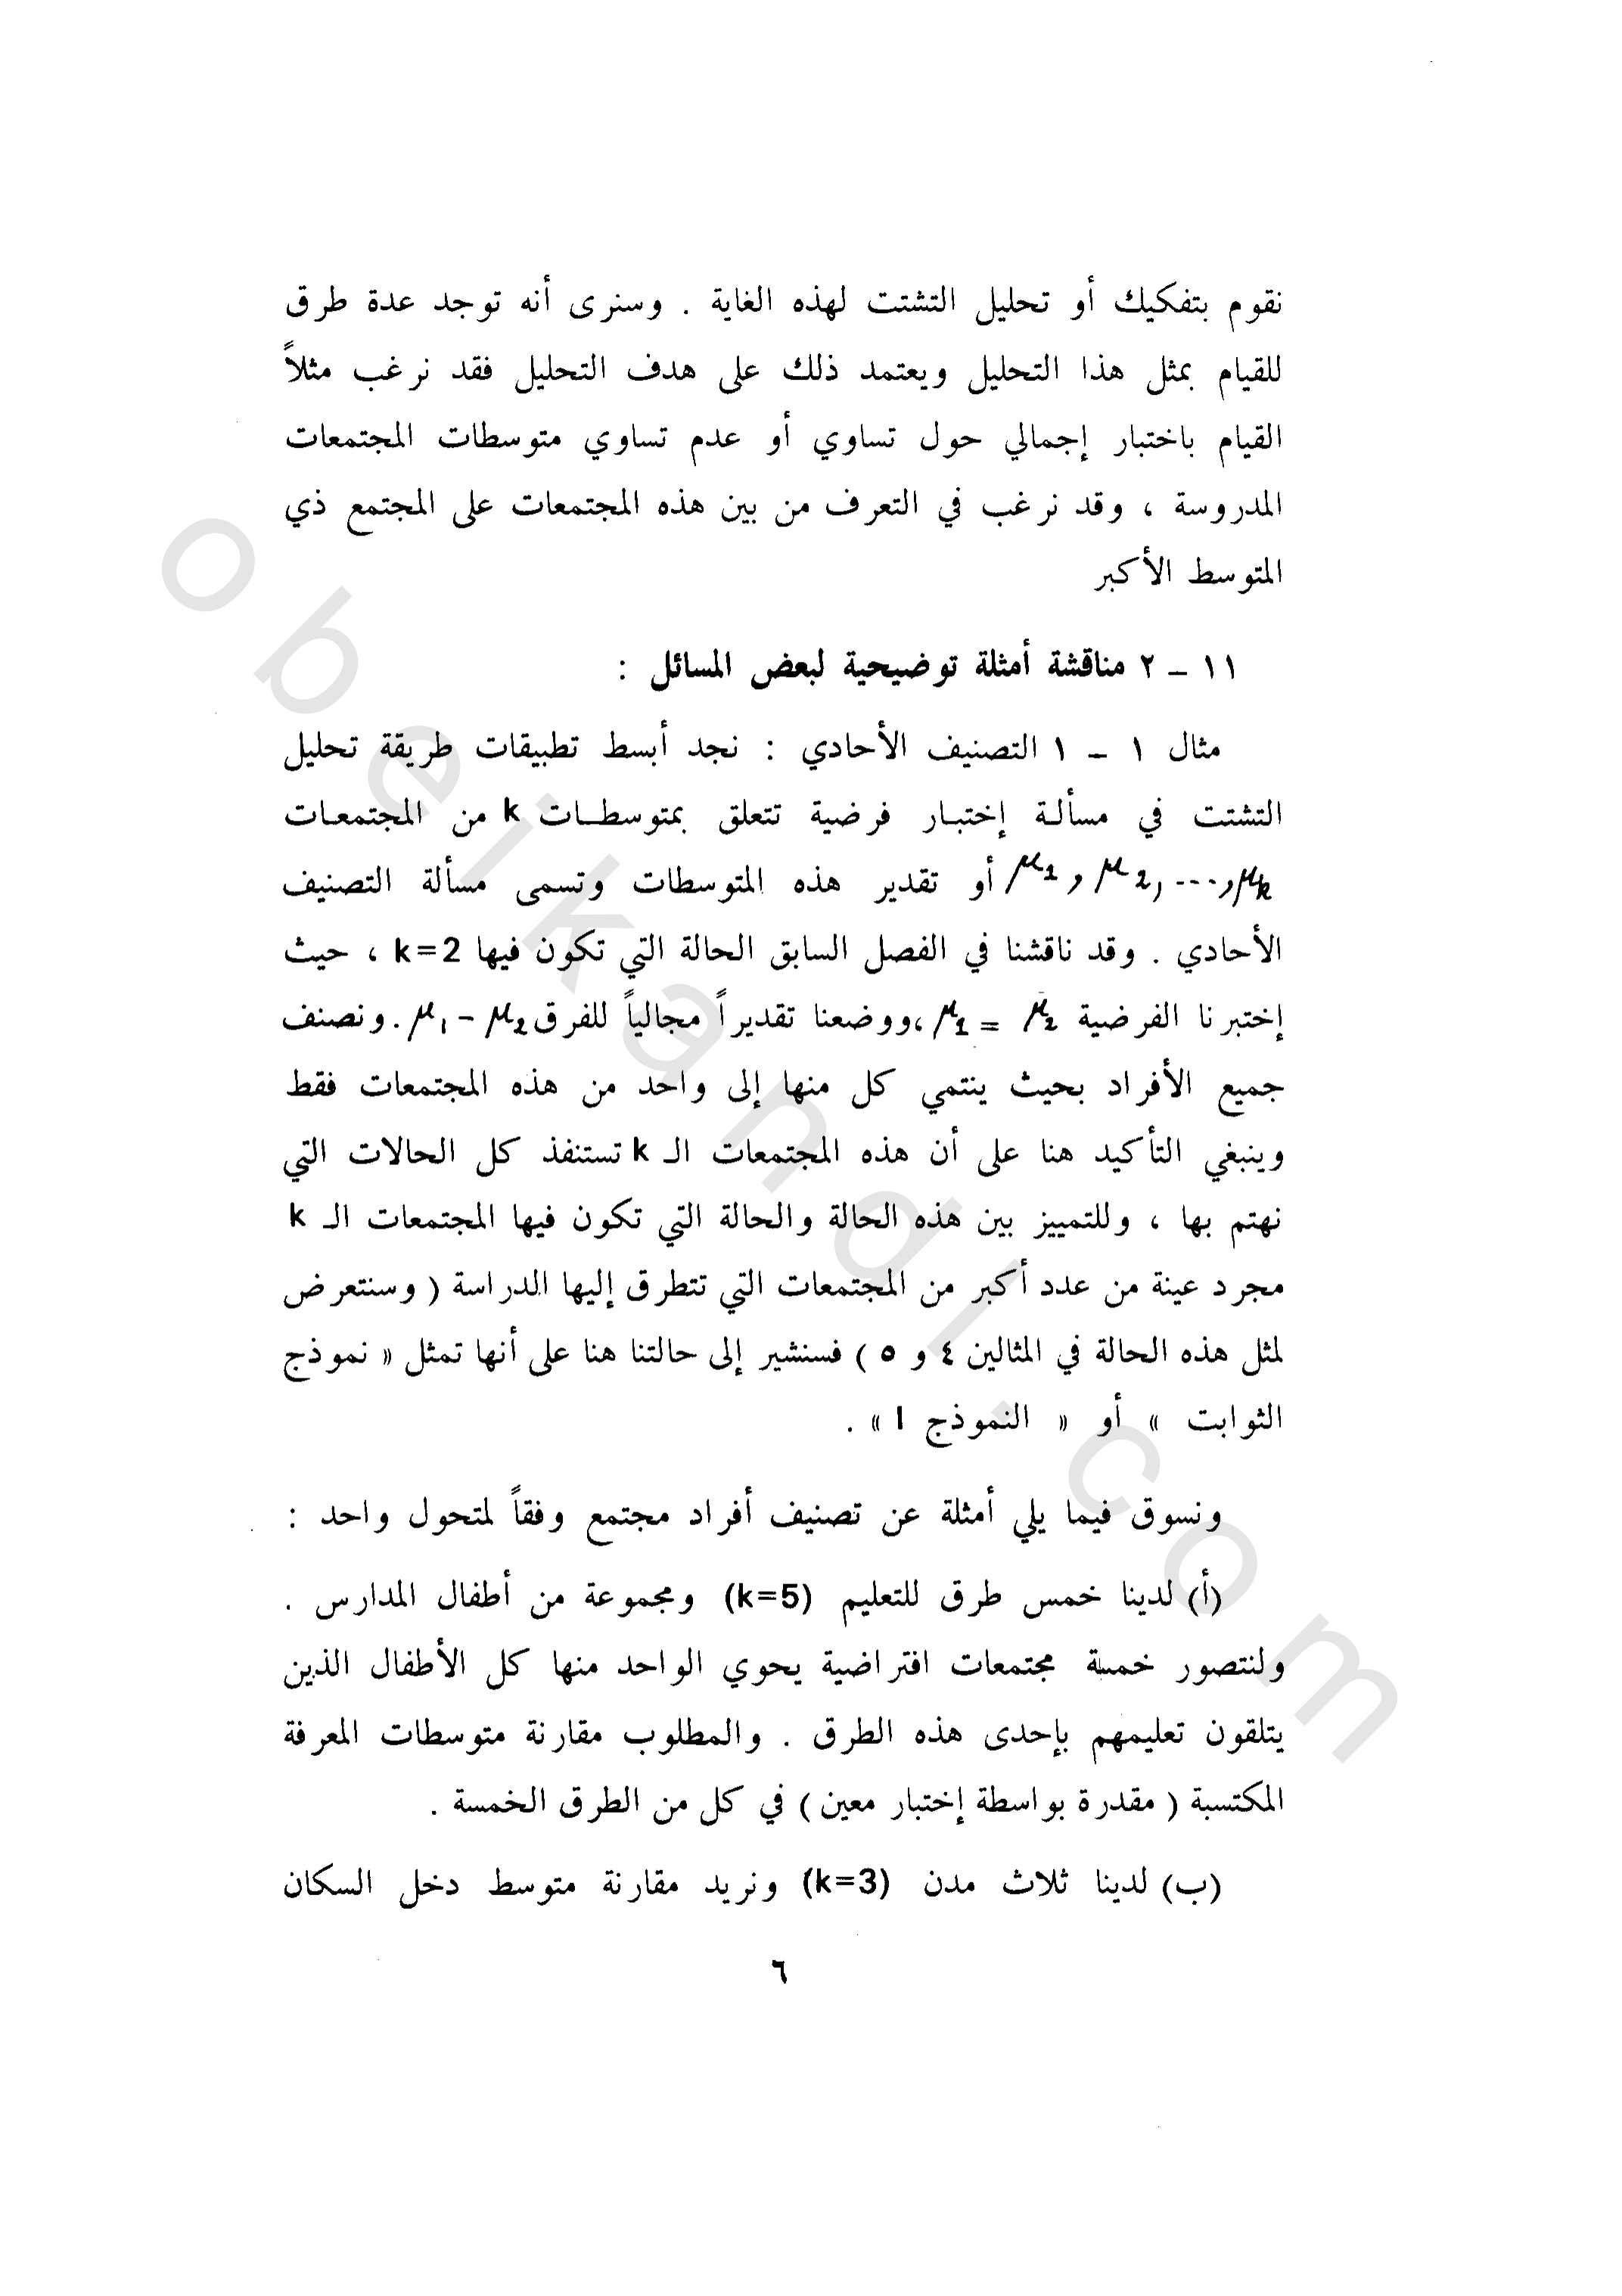 نقوم بتفكيك أو تحليل التشتت لهذه الغاية . وسنرى أنه توجد عدة طرق
للقيام بمثل هذا التحليل ويعتمد ذلك على هدف التحليل فقد نرغب مثلاً
القيام باختبار إجمالي حول تساوي أو عدم تساوي متوسطات المجتمعات
المدروسة ، وقد نرغب في التعرف من بين هذه المجتمعات على المجتمع ذي
المتوسط الأكبر
١١ – ٢ مناقشة أمثلة توضيحية لبعض المسائل :
مثال ١ – ١ التصنيف الأحادي : نجد أبسط تطبيقات طريقة تحليل
التشتت في مسألة إختبار فرضية تتعلق بمتوسطات k من المجتمعات
μ1 , μ2, ---, μk أو تقدير هذه المتوسطات وتسمى مسألة التصنيف
الأحادي . وقد ناقشنا في الفصل السابق الحالة التي تكون فيها k=2 ، حيث
إختبرنا الفرضية μ1 = μ2 ،ووضعنا تقديراً مجالياً للفرق μ1 – μ2 . ونصنف
جميع الأفراد بحيث ينتمي كل منها إلى واحد من هذه المجتمعات فقط
وينبغي التأكيد هنا على أن هذه المجتمعات الـ k تستنفذ كل الحالات التي
نهتم بها ، وللتمييز بين هذه الحالة والحالة التي تكون فيها المجتمعات الـ k
مجرد عينة من عدد أكبر من المجتمعات التي تتطرق إليها الدراسة ( وسنتعرض
لمثل هذه الحالة في المثالين ٤ و ٥ ) فسنشير إلى حالتنا هنا على أنها تمثل « نموذج
الثوابت » أو « النموذج I » .
ونسوق فيما يلي أمثلة عن تصنيف أفراد مجتمع وفقاً لمتحول واحد :
(أ) لدينا خمس طرق للتعليم (k=5) ومجموعة من أطفال المدارس .
ولنتصور خمسة مجتمعات افتراضية يحوي الواحد منها كل الأطفال الذين
يتلقون تعليمهم بإحدى هذه الطرق . والمطلوب مقارنة متوسطات المعرفة
المكتسبة ( مقدرة بواسطة إختبار معين ) في كل من الطرق الخمسة .
(ب) لدينا ثلاث مدن (k=3) ونريد مقارنة متوسط دخل السكان
٦
obeikandi.com